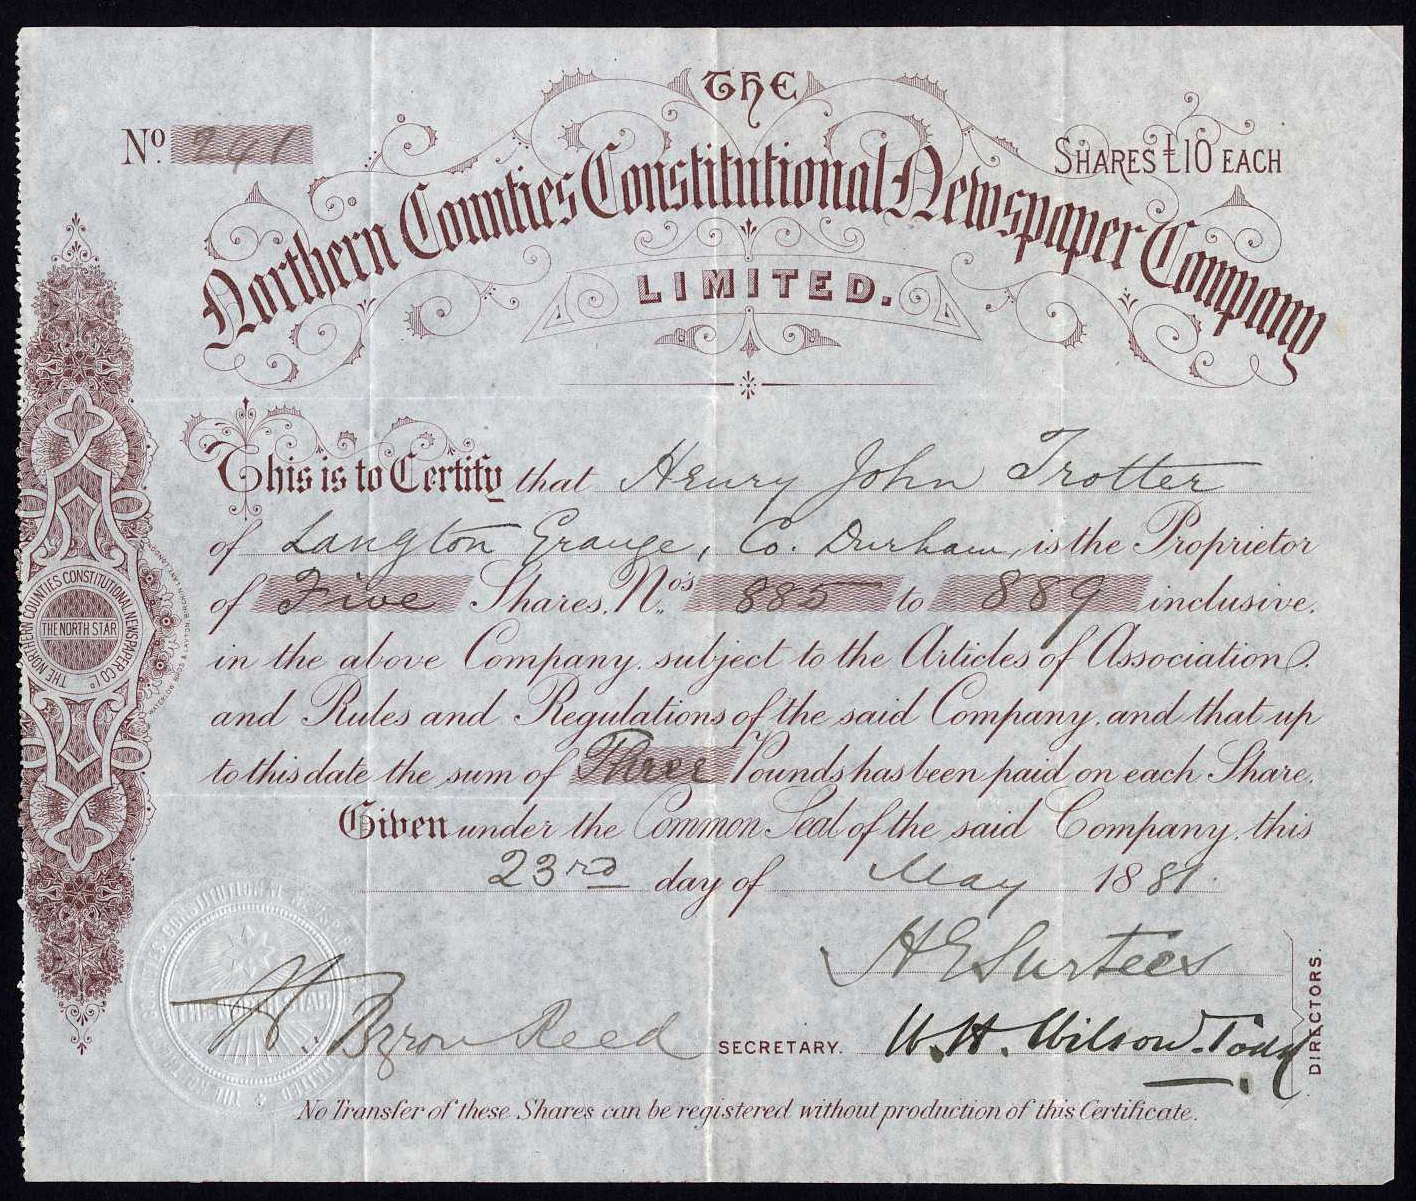 THE
No. 241
SHARES £10 EACH
Northern Counties Constitutional Newspaper Company
LIMITED.
This is to Certify that Henry John Trotter
of Langton Grange, Co. Durham, is the Proprietor
of Five Shares, Nos. 885 to 889 inclusive,
in the above Company, subject to the Articles of Association,
and Rules and Regulations of the said Company, and that up
to this date the sum of Three Pounds has been paid on each Share.
Given under the Common Seal of the said Company, this
23rd day of May 1881.
H E Surtees
H. Byron Reed SECRETARY.
W. H. Wilson-Todd
DIRECTORS.
No Transfer of these Shares can be registered without production of this Certificate.
THE NORTHERN COUNTIES CONSTITUTIONAL NEWSPAPER CO. LD.
THE NORTH STAR
WATERLOW BROS & LAYTON, BIRCHIN LANE, LONDON
THE NORTH STAR